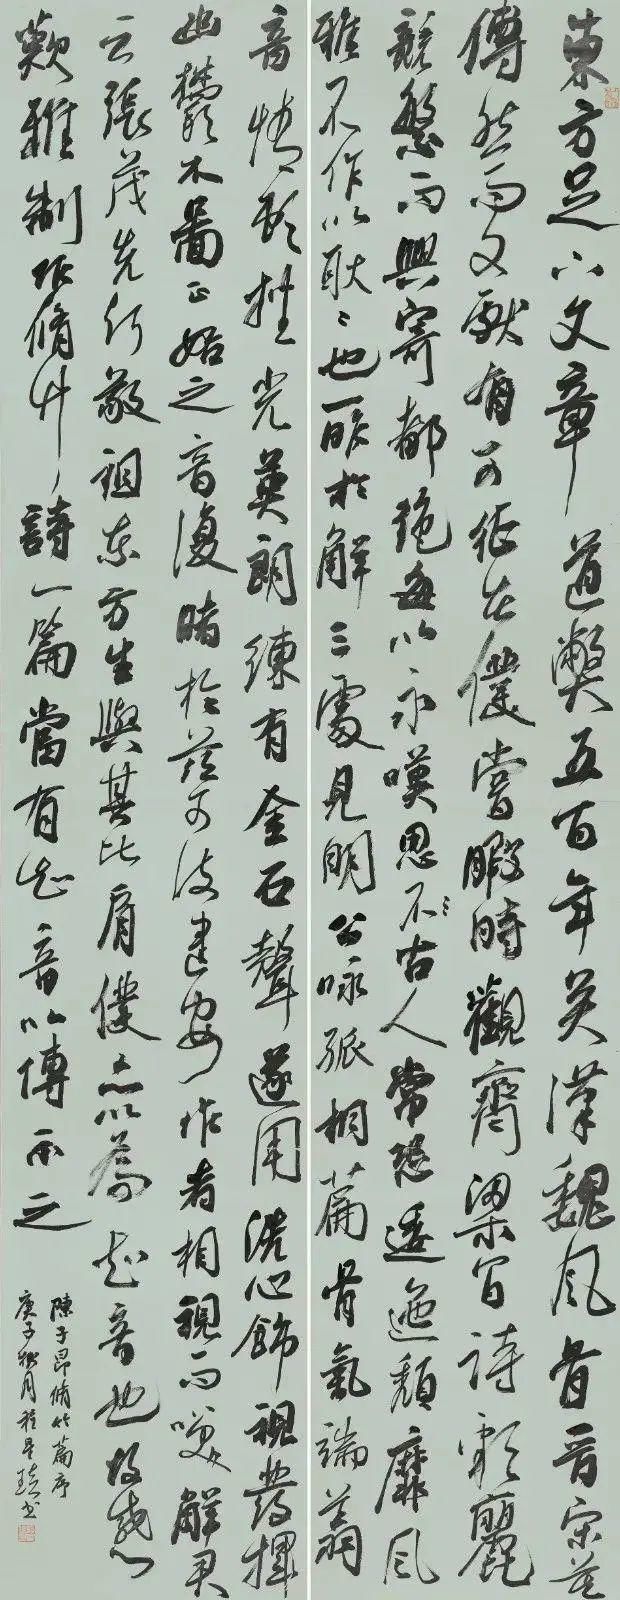 東方足下文章道弊五百年矣漢魏風骨晉宋莫
傳然而文獻有可征者僕嘗暇時觀齊梁間詩彩麗
競繁而興寄都絕每以永嘆思不古人常恐逶迤頹靡風
雅不作以耿〻也一昨於解三處見明公咏孤桐篇骨氣端翔
音情頓挫光英朗練有金石聲遂用洗心飾視發揮
幽鬱不圖正始之音復睹於茲可使建安作者相視而笑解君
云張茂先何敬祖東方生與其比肩僕亦以為知音也故感
歎雅制作脩竹詩一篇當有知音以傳示之
陳子昂脩竹篇序
庚子秋月程書